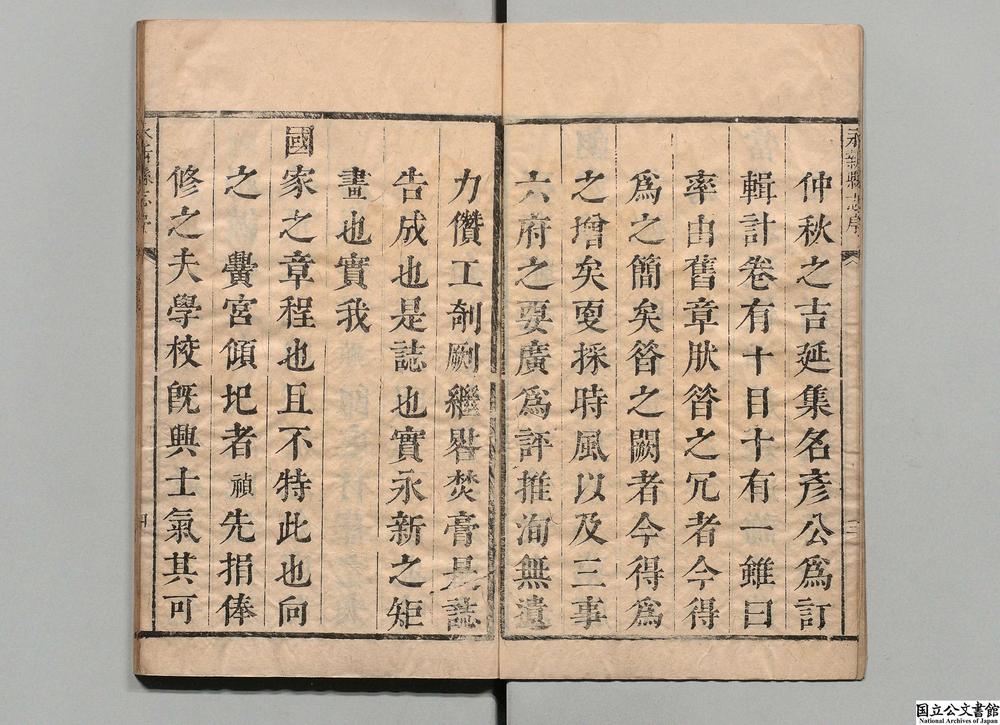 永新縣志序
仲秋之吉延集名彦公爲訂
輯計卷有十日十有一雖曰
率由舊章肰昝之冗者今得
爲之簡矣昝之闕者今得爲
之增矣更採時風以及三事
六府之要廣爲評推洵無遺
力儹工剞劂繼晷焚膏是誌
告成也是誌也實永新之矩
畫也實我
國家之章程也且不特此也向
之黌宮傾圯者禎先捐俸
修之夫學校旣興士氣其可
永新縣志序
四
国立公文書館
National Archives of Japan